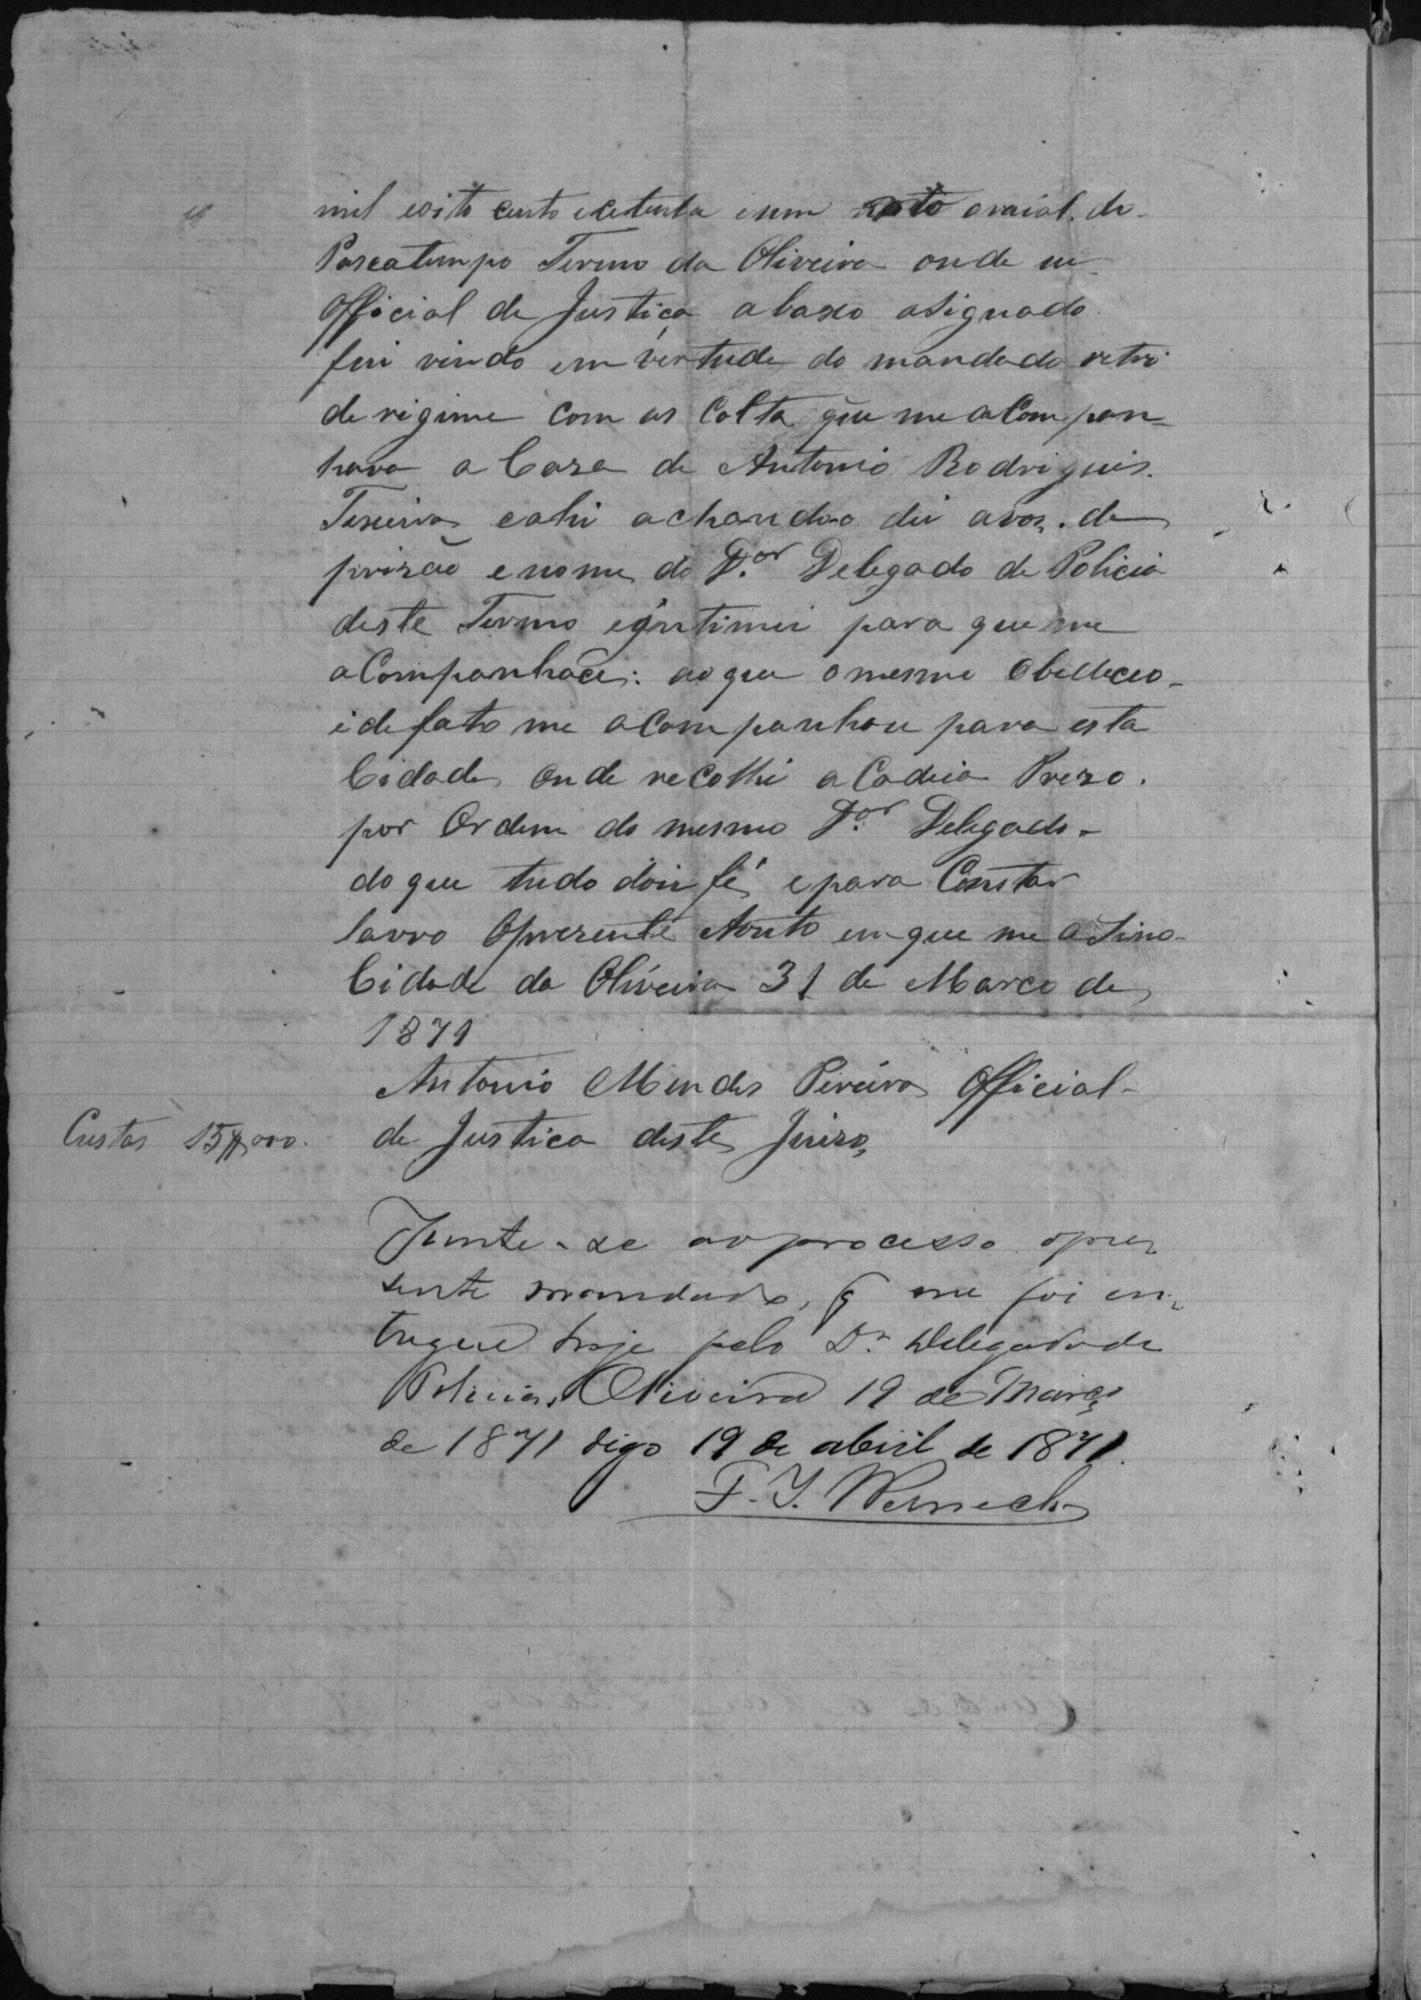 mil eoito cento e cetenta e um nesto araial do
Pascatempo Termo da Oliveira onde eu
Official de Justiça abaxo asignado
fui vindo em vertude do mandado retro
derigime com as Colta que me aCompan-
hava a Caza de Antonio Rodrigues
Texeira eahi achando-o dei avos de
prizão enome do D.or Delegado de Policia
deste Termo eintimei para que me
aCompanhace: ao que omesmo Obedeceo-
idefato me aCompanhou para esta
Cidade Onde reColhi aCadeia Prezo.
por Ordem do mesmo D.or Delegado-
do que tudo dou fé epara Constar
lavro Oprezente Aouto emque me asino-
Cidade da Oliveira 31 de Marco de
1871
Antonio Mendes Pireira Official-
de Justica deste Juizo,
Custas 15$000.
Junte-se ao processo opre-
sente mandado, q me foi en-
tregue hoje pelo Dr. Delegado de
Policia. Oliveira 19 de Março
de 1871 digo 19 de abril de 1871.
F. J. Werneck